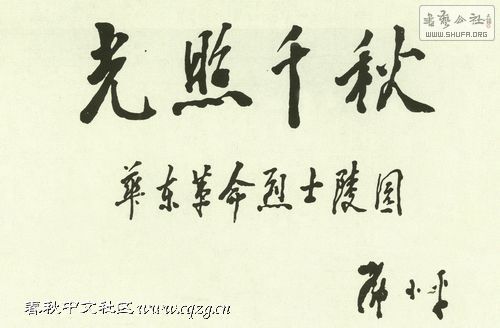 書藝公社
WWW.SHUFA.ORG
光照千秋
華东革命烈士陵园
邓小平
春秋中文社区www.cqzg.cn